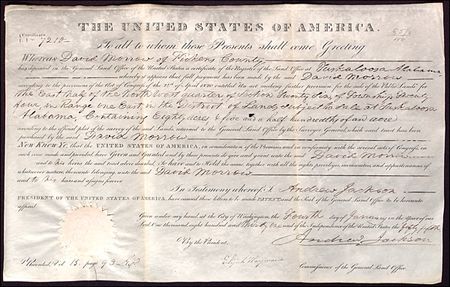 THE UNITED STATES OF AMERICA.
Certificate
No. 7210
To all to whom these Presents shall come Greeting
Whereas David Morrow of Pickens County
has deposited in the General Land Office of the United States, a certificate of the Register of the Land Office at Tuskaloosa Alabama
whereby it appears that full payment has been made by the said David Morrow
according to the provisions of the Act of Congress of the 24th of April 1820 entitled An act making further provision for the sale of the Public Lands for
The East half of the North East quarter of Section Twenty five of Township Twenty
four in Range one East in the District of Lands subject to sale at Tuskaloosa
Alabama, Containing Eighty acres & five and a half hundredths of an acre
according to the official plat of the survey of the said Lands, returned to the General Land Office by the Surveyor General, which said tract has been
purchased by the said David Morrow
Now Know Ye, that the UNITED STATES OF AMERICA, in consideration of the Premises, and in conformity with the several acts of Congress in
such case made and provided, have Given and Granted and by these presents do give and grant unto the said David Morrow
and to his heirs the said tract above described: To have and to Hold the same, together with all the rights, privileges, immunities, and appurtenances of
whatsoever nature, thereunto belonging, unto the said David Morrow
and to his heirs and assigns forever
In Testimony whereof I Andrew Jackson
PRESIDENT OF THE UNITED STATES OF AMERICA, have caused these Letters to be made PATENT and the Seal of the General Land Office to be hereunto
affixed.
Given under my hand at the City of Washington, the Fourth day of January in the Year of our
Lord one thousand eight hundred and thirty one and of the Independence of the United States the fifty fifth
By the President,
Andrew Jackson
Elijah Hayward
Commissioner of the General Land Office
Recorded, Vol. 15. page 93